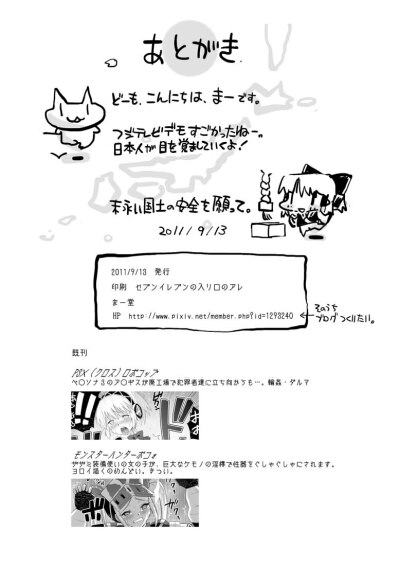 あとがき
どーも、こんにちは、まーです。
フジテレビデモすごかったねー。
日本人が目を覚ましていくよ!
末永い国土の安全を願って。
2011/9/13
2011/9/13 発行
印刷 セブンイレブンの入り口のアレ
まー堂
HP http://www.pixiv.net/member.php?id=1293240
そのうち
ブログつくりたい。
既刊
ペ○ソナ3のア○ギスが廃工場で犯罪者達に立ち向かうも…。輪姦・ダルマ
ザザミ装備使いの女の子が、巨大なケモノの淫棒で性器をぐしゃぐしゃにされます。
ヨロイ描くのめんどい。きつい。